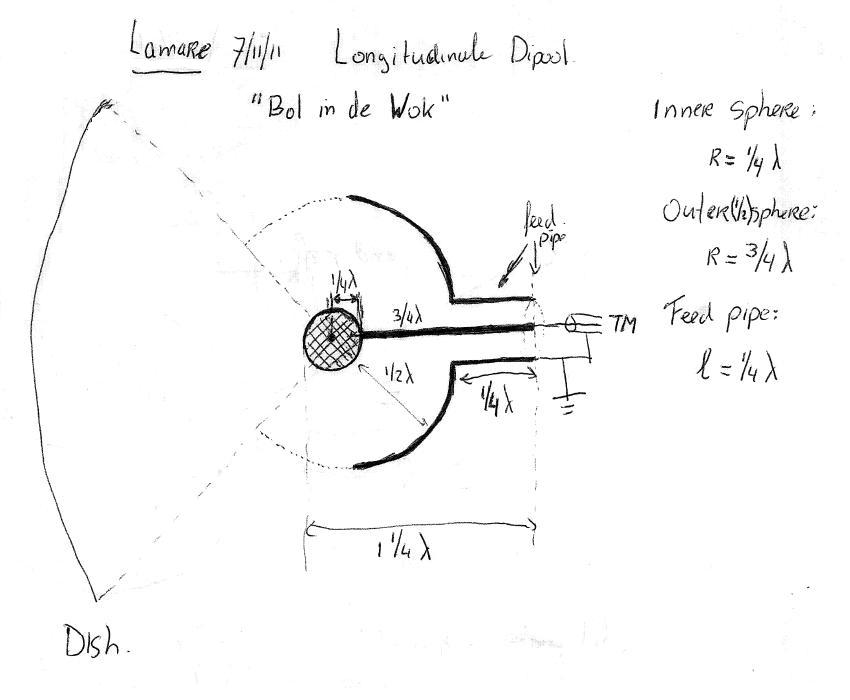 Lamare 7/11/11 Longitudinale Dipool.
"Bol in de Wok"
Inner sphere:
R = 1/4 λ
Outer (1/2) sphere:
R = 3/4 λ
Feed pipe:
l = 1/4 λ
feed
pipe
1/4 λ
3/4 λ
TM
1/2 λ
1/4 λ
1 1/4 λ
Dish.